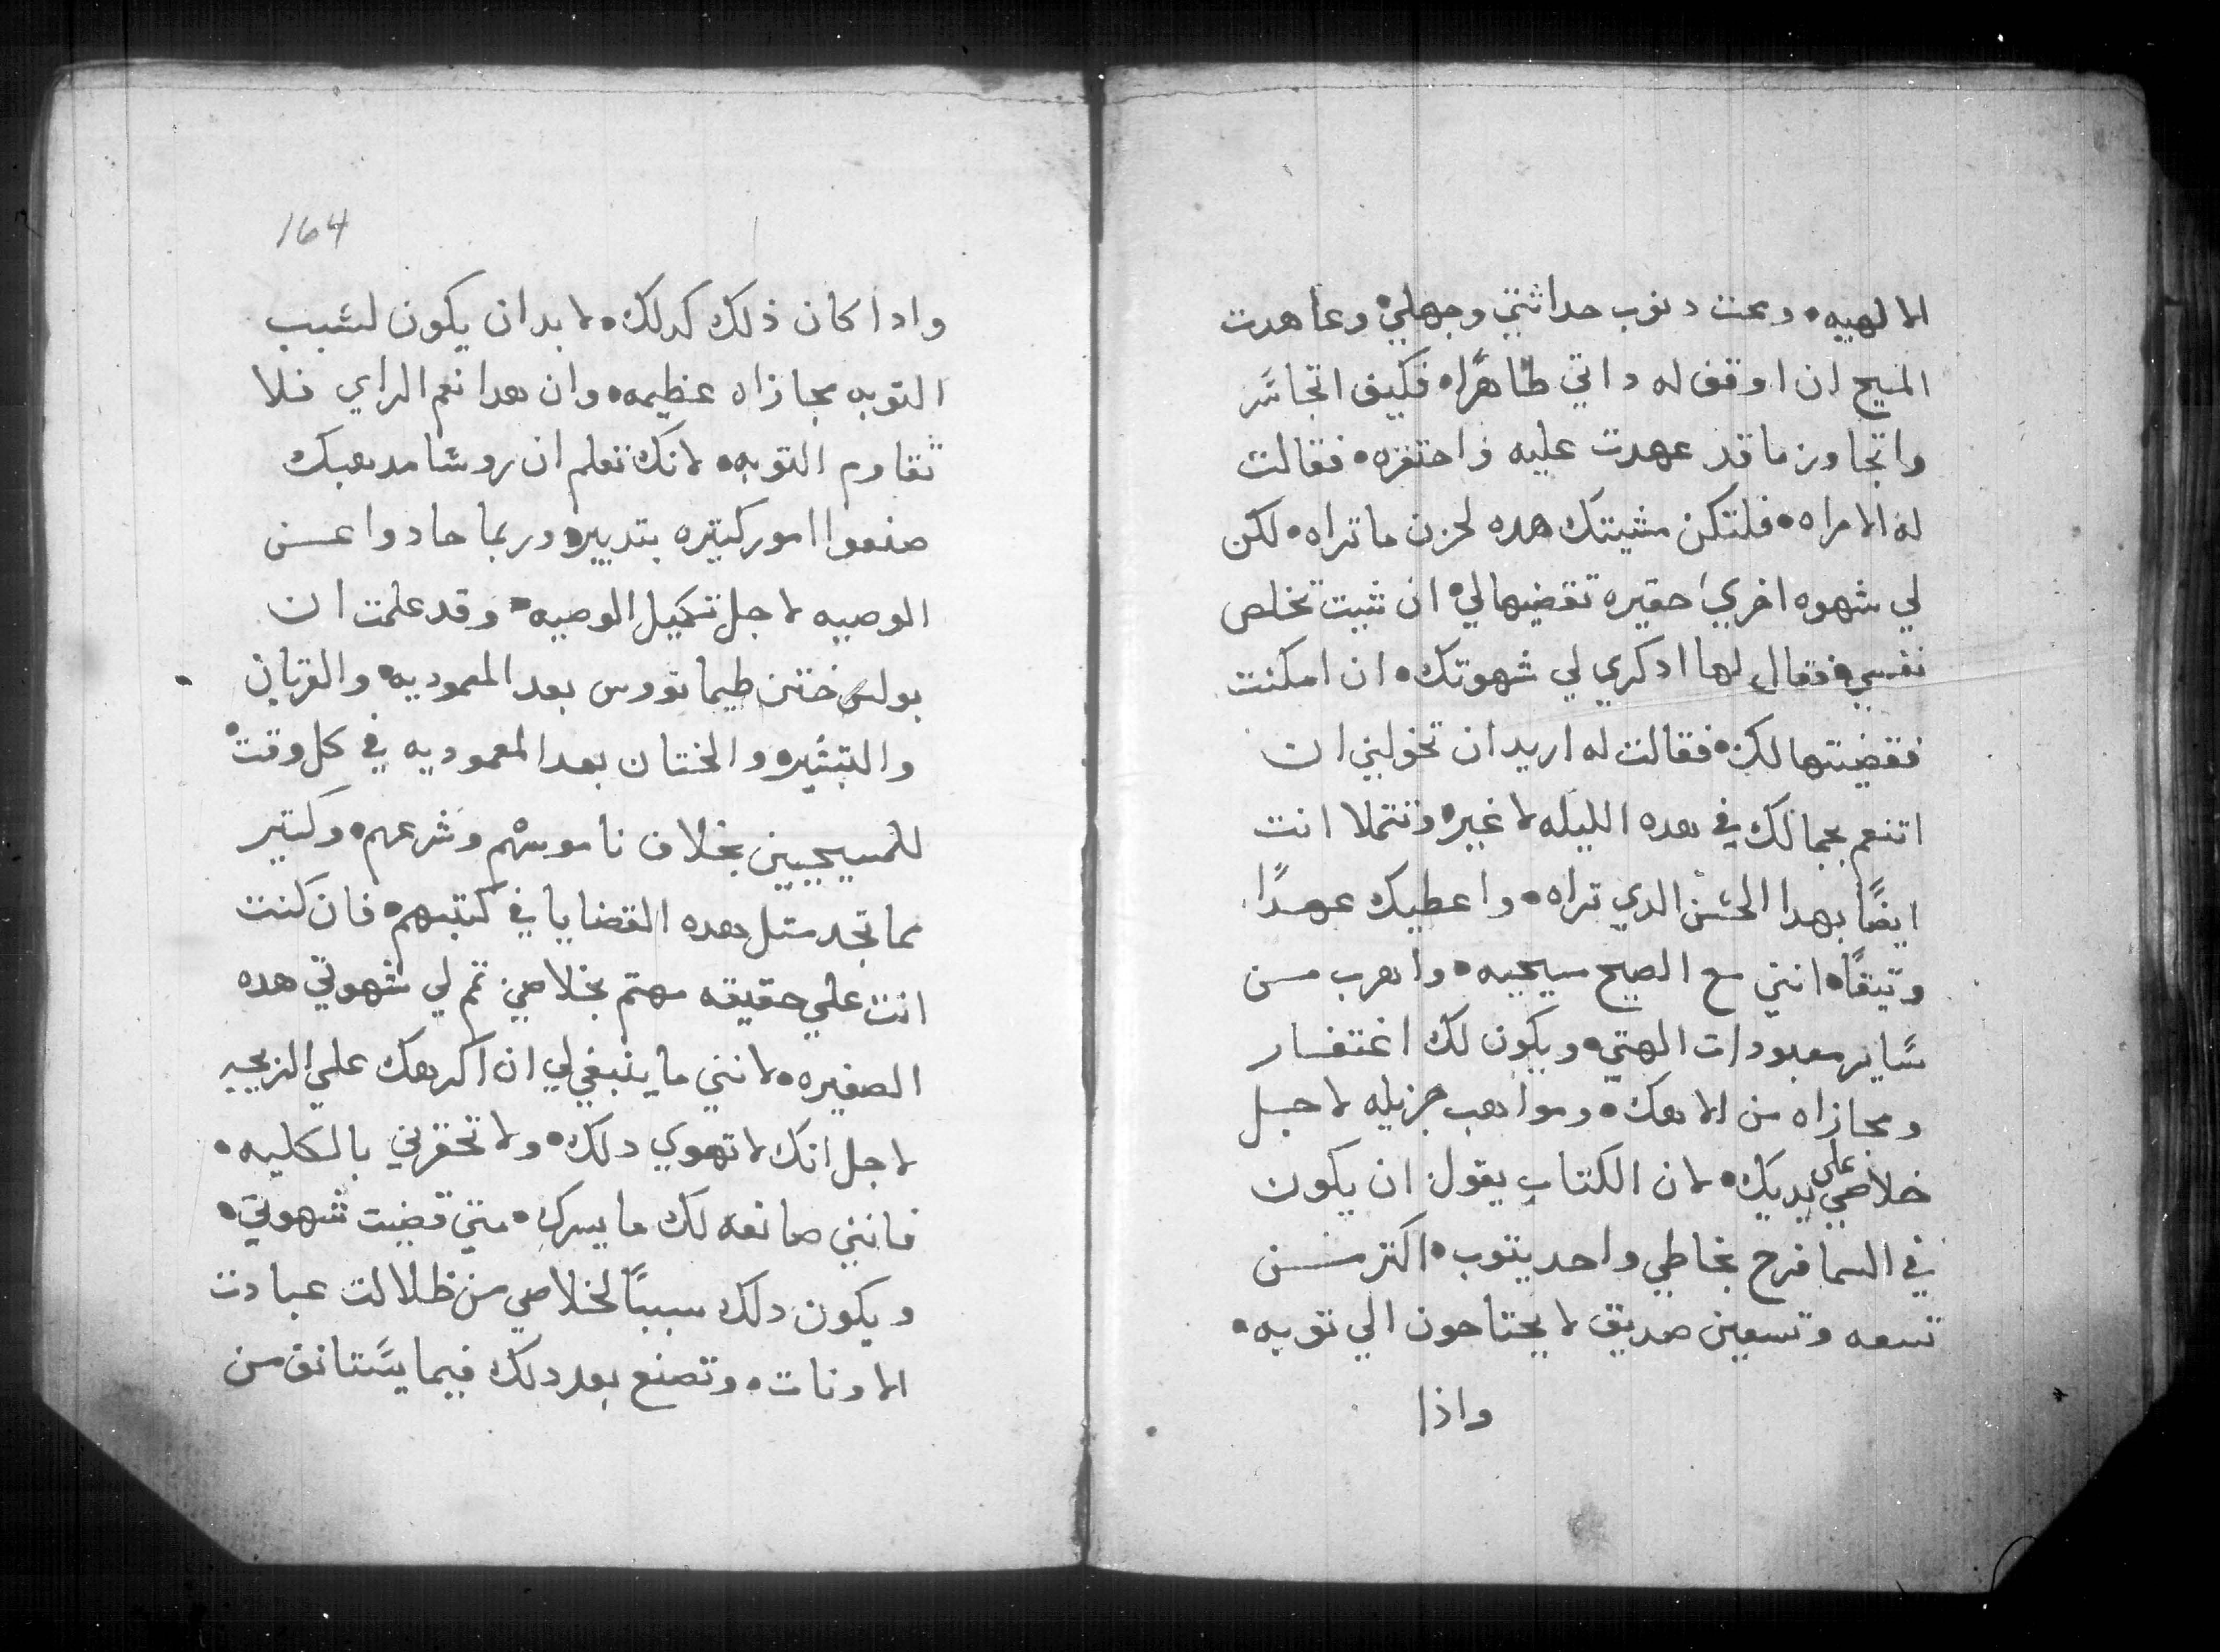 الالهيه• ومحت دنوب حداثتي وجهلي• وعاهدت
المسيح ان اوقف له داتي طاهرًا• فكيف اتجاسر
واتجاوز ما قد عهدت عليه واحتقره• فقالت
له الامراه• فلتكن مشيتك هده لحزن ما تراه• لكن
لي شهوه اخري حقيره تقضيها لي• ان شيت تخلص
نفسي• فقال لها ادكري لي شهوتك• ان امكنت
فقضيتها لك• فقالت له اريد ان تخولني ان
اتنعم بجمالك في هده الليله لا غير• وتتملا انت
ايضًا بهدا الحسن الدي تراه• واعطيك عهدًا
وتيقًا• انني مع الصبح مسيحيه• واهرب من
ساير معبودات الهتي• ويكون لك اغتفار
ومجازاه من الاهك• ومواهب جزيله لاجل
خلاصي على يديك• لان الكتاب يقول ان يكون
في السما فرح بخاطي واحد يتوب• اكتر من
تسعه وتسعين صديق لا يحتاحون الي توبه•
واذا
164
وادا كان ذلك كدلك• لا بد ان يكون لسبب
التوبه مجازاه عظيمه• وان هدا نعم الراي فلا
تقاوم التوبه• لانك تعلم ان روسا مدهبك
صنعوا امور كتيره بتدبير• وربما حادوا عن
الوصيه لاجل تكميل الوصيه• وقد علمت ان
بولس ختن طيماتووس بعد المعموديه• والقربان
والتبشير• والختان بعد المعموديه في كل وقت
للمسيحيين بخلاف ناموسهم وشرعهم• وكتير
مما تجد متل هده القضايا في كتبهم• فان كنت
انت علي حقيقه مهتم بخلاصي تمم لي شهوتي هده
الصغيره• لانني ما ينبغي لي ان اكرهك علي الزيجه
لاجل انك لا تهوي دلك• ولا تحقرني بالكليه•
فانني صانعه لك ما يسرك• متي قضيت شهوتي•
ويكون دلك سببًا لخلاصي من ظلالت عبادت
الاوتان• وتصنع بعد دلك فيما يستانف من